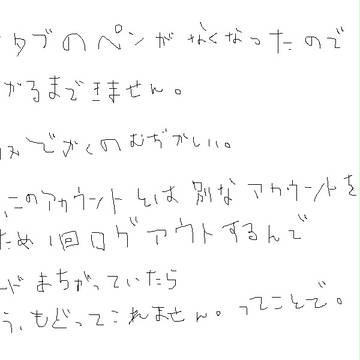 タブのペンがなくなったので
がるまできません。
でかくのむぢかしい。
このアカウントとは別なアカウントを
ため1回ログアウトするんで
ードまちがっていたら
う、もどってこれません。ってことで。